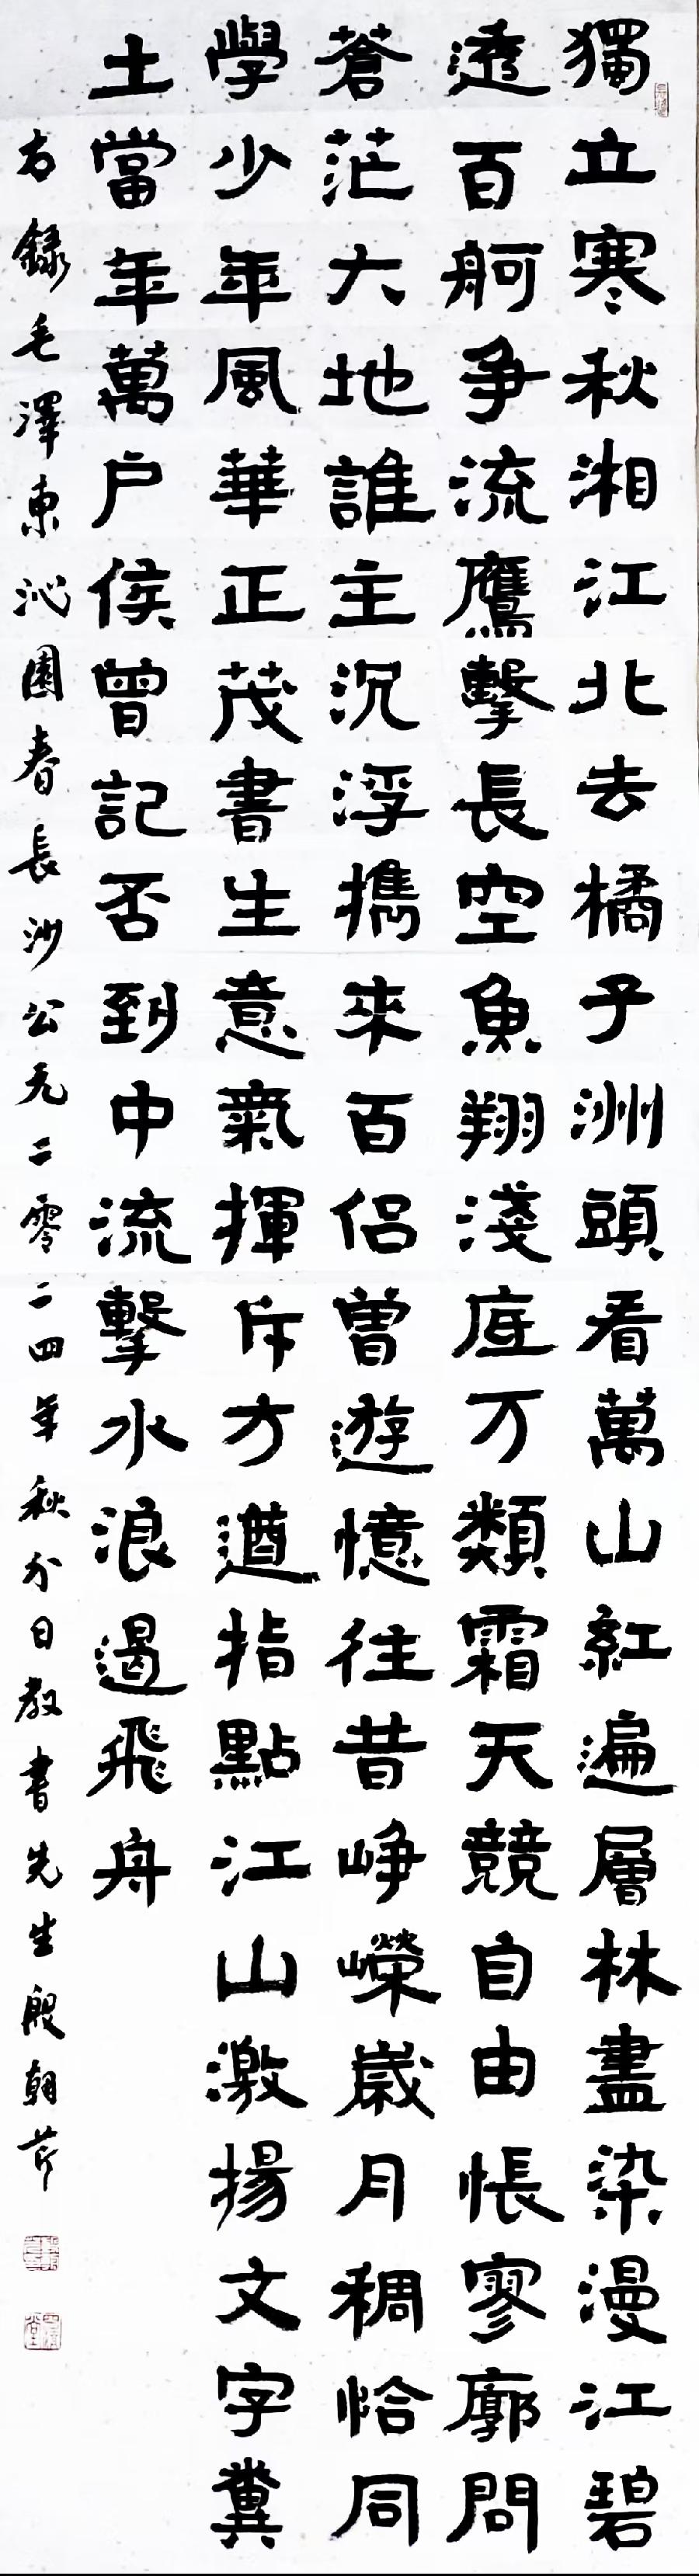 獨立寒秋湘江北去橘子洲頭看萬山紅遍層林盡染漫江碧
透百舸争流鷹擊長空魚翔淺底万類霜天競自由悵寥廓問
蒼茫大地誰主沉浮攜來百侣曾遊憶往昔崢嶸歲月稠恰同
學少年風華正茂書生意氣揮斥方遒指點江山激揚文字糞
土當年萬户侯曾記否到中流擊水浪遏飛舟
右録毛澤東沁園春長沙公元二零二四年秋分日教書先生殷朝芹